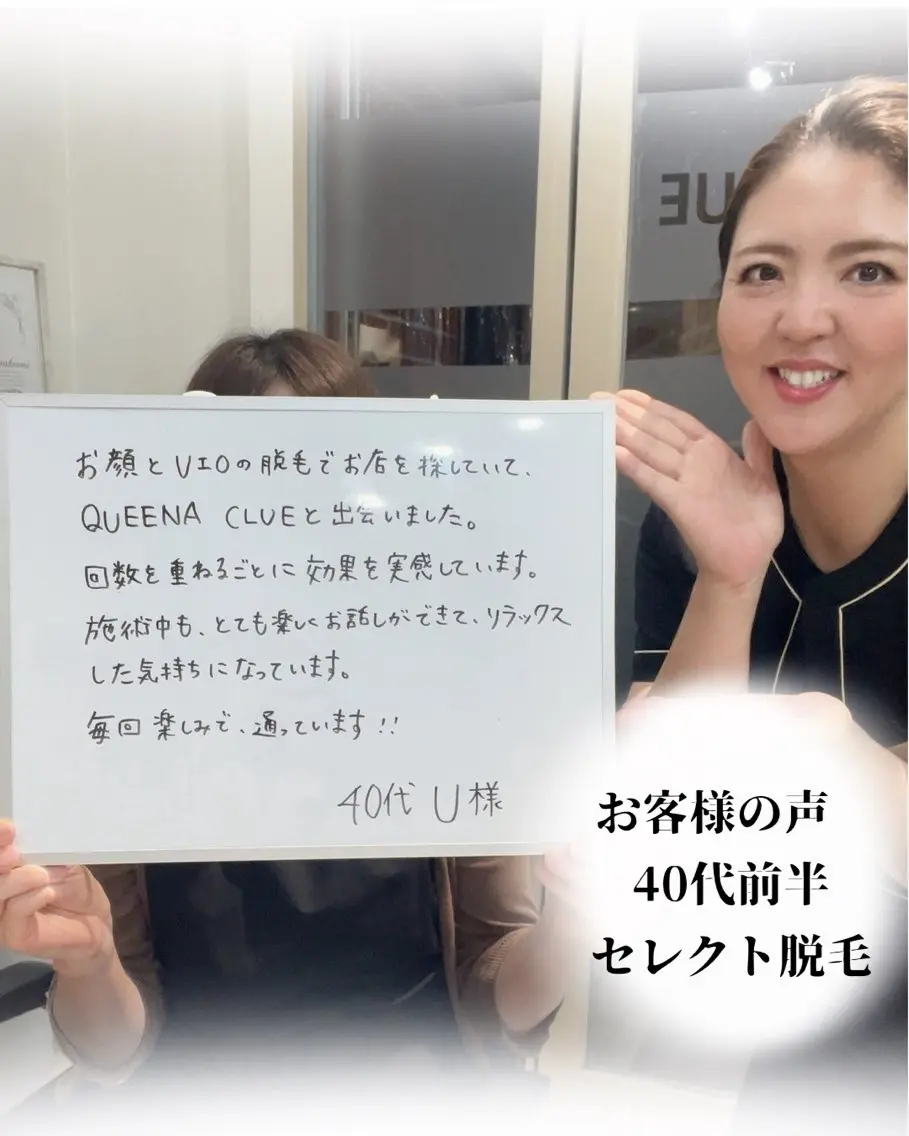 お顔とVIOの脱毛でお店を探していて、
QUEENA CLUEと出会いました。
回数を重ねるごとに効果を実感しています。
施術中も、とても楽しくお話しができて、リラックス
した気持ちになっています。
毎回楽しみで、通っています!!
40代 U様
お客様の声
40代前半
セレクト脱毛
UE